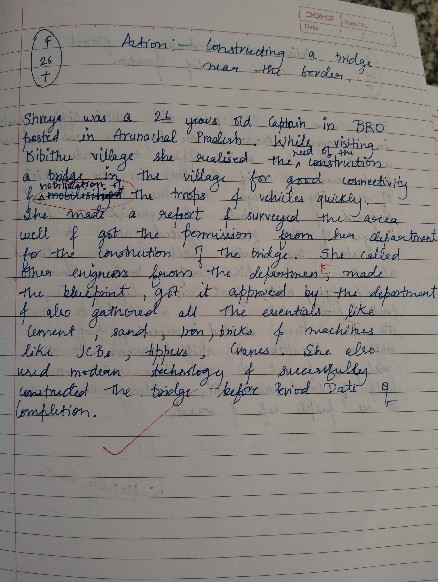 DOMS
Date
F
26
+
Action: Constructing a bridge
near the border.
Shreya was a 26 years old Captain in BRO
posted in Arunachal Pradesh. While visiting
Kibithu village she realised the need of the construction
a bridge in the village for good connectivity
& mobilization of the troops & vehicles quickly.
She made a report & surveyed the area
well & got the permission from her department
for the construction of the bridge. She called
other engineers from the department, made
the blueprint, got it approved by the department
& also gathered all the essentials like
cement, sand, iron, bricks & machines
like JCBs, tippers, cranes. She also
used modern technology & successfully
constructed the bridge before Period Date of
completion.